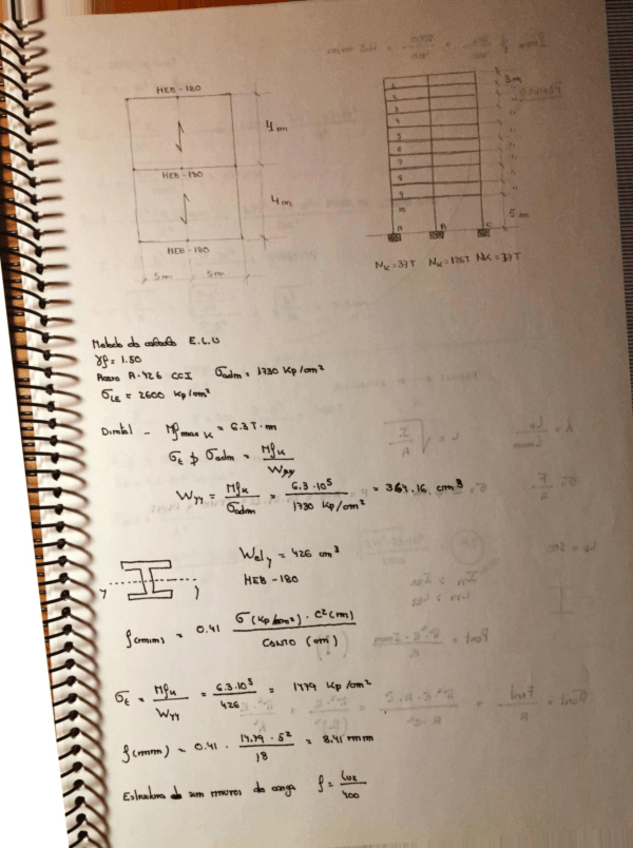 HEB-180
4m
HEB-180
4m
HEB-180
5m 5m
1
2
3
4
5
6
7
8
9
10
3m
5m
A B C
Nk = 37T Nk = 126T Nk = 37T
Metodo de calculo E.L.U
γf = 1.50
Acero A-42b CCI σadm = 1730 Kp/cm²
σLE = 2600 Kp/cm²
Dintel - Mfmax k = 6.3 T·m
σt ≯ σadm = Mfk / Wyy
Wyy = Mfk / σadm = 6.3·10⁵ / 1730 Kp/cm² = 364.16 cm³
Wely = 426 cm³
y y HEB-180
f(mm) = 0.41 σ(Kp/mm²)·L²(m) / CANTO (cm)
σt = Mfk / Wyy = 6.3·10⁵ / 426 = 1479 Kp/cm²
f(mm) = 0.41 · 14.79·5² / 18 = 8.41 mm
muros de carga f = Luz / 400